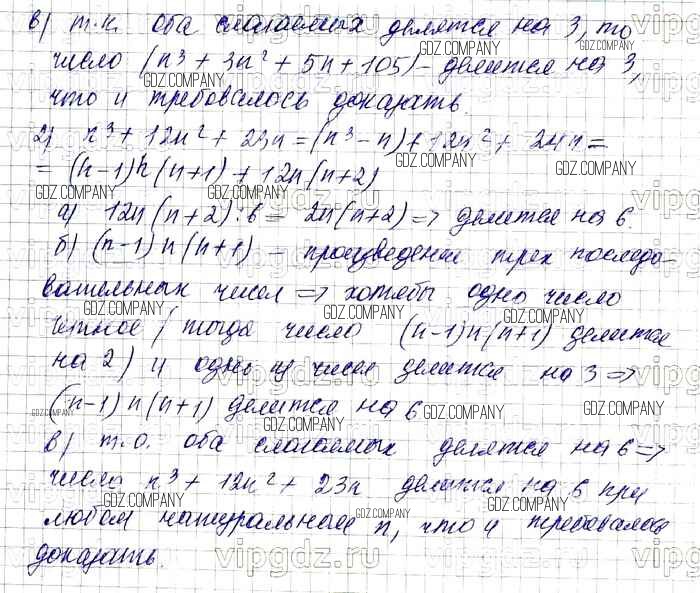 в) т.к. оба слагаемых делятся на 3, то
число (n³ + 3n² + 5n + 105) - делится на 3,
что и требовалось доказать.
2) n³ + 12n² + 23n = (n³ - n) + 12n² + 24n =
= (n-1)n(n+1) + 12n(n+2)
а) 12n(n+2):6 = 2n(n+2) => делится на 6.
б) (n-1)n(n+1) - произведение трех последо-
вательных чисел => хотябы одно число
четное (тогда число (n-1)n(n+1) делится
на 2) и одно из чисел делится на 3 =>
(n-1)n(n+1) делится на 6
в) т.о. оба слагаемых делятся на 6 =>
число n³ + 12n² + 23n делится на 6 при
любом натуральном n, что и требовалось
доказать.